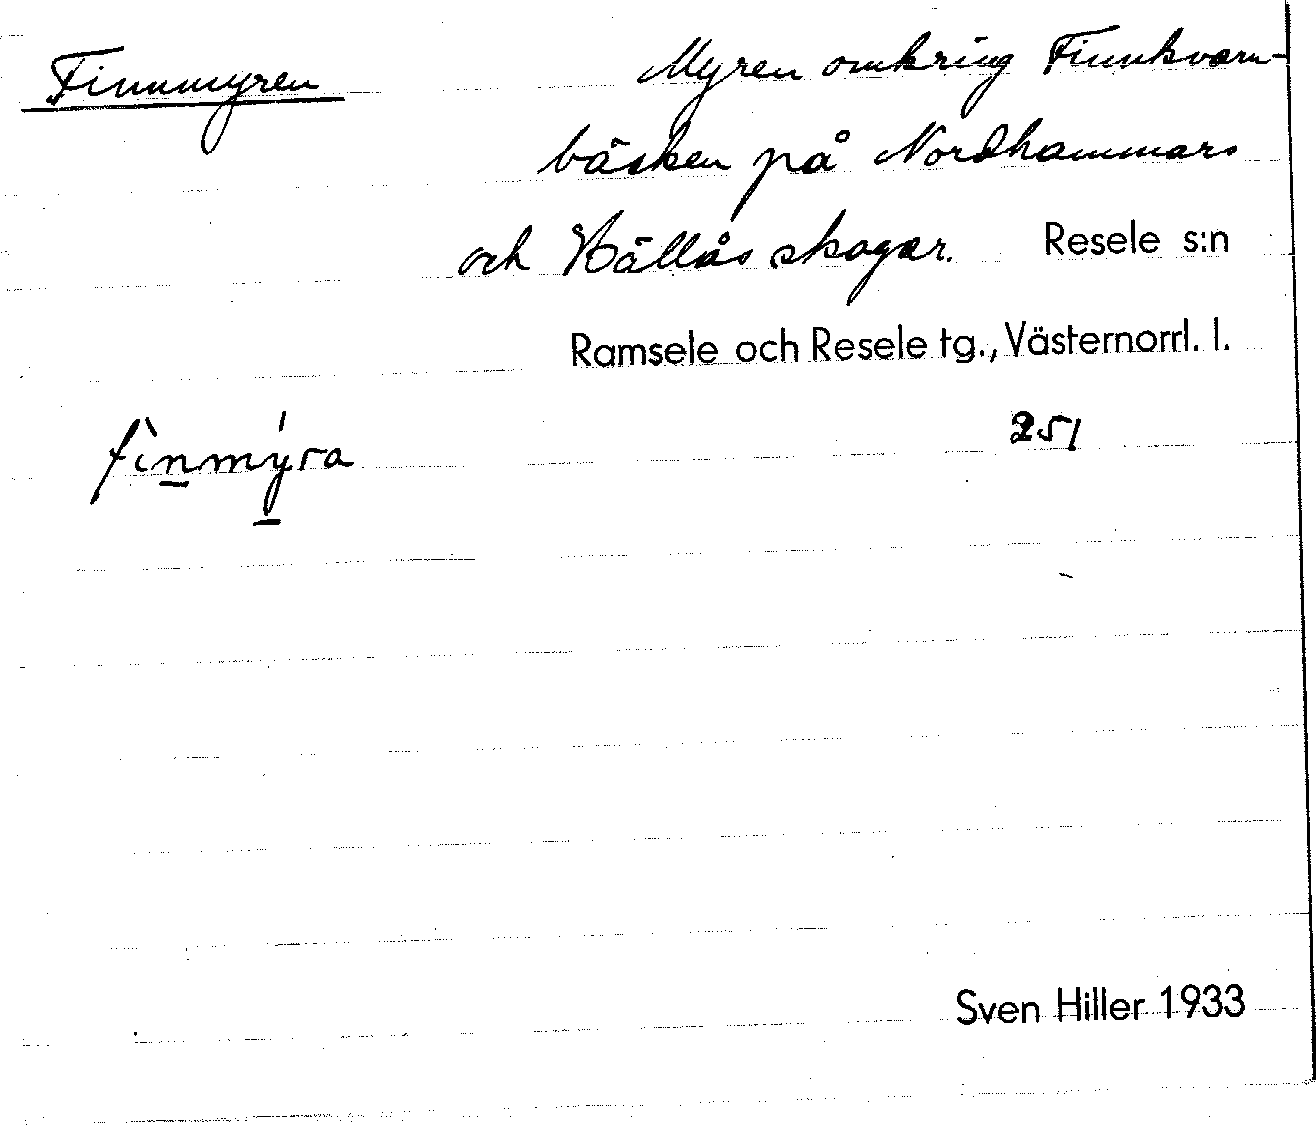 Finnmyren
Myren omkring Finnkvarn-
bäcken på Nordhammars
och Hällås skogar. Resele s:n
Ramsele och Resele tg., Västernorrl. l.
fìnmýra 251
Sven Hiller 1933